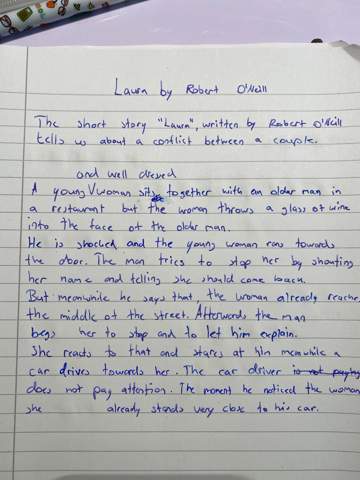 Laura by Robert O'Neill
The short story "Laura", written by Robert O'Neill
tells us about a conflict between a couple.
and well dressed
A young woman sits together with an older man in
a restaurant but the woman throws a glass of wine
into the face of the older man.
He is shocked and the young woman runs towards
the door. The man tries to stop her by shouting
her name and telling she should come back.
But meanwhile he says that, the woman already reache
the middle of the street. Afterwards the man
begs her to stop and to let him explain.
She reacts to that and stares at him meanwhile a
car drives towards her. The car driver is not paying
does not pay attention. The moment he noticed the woman
she already stands very close to his car.